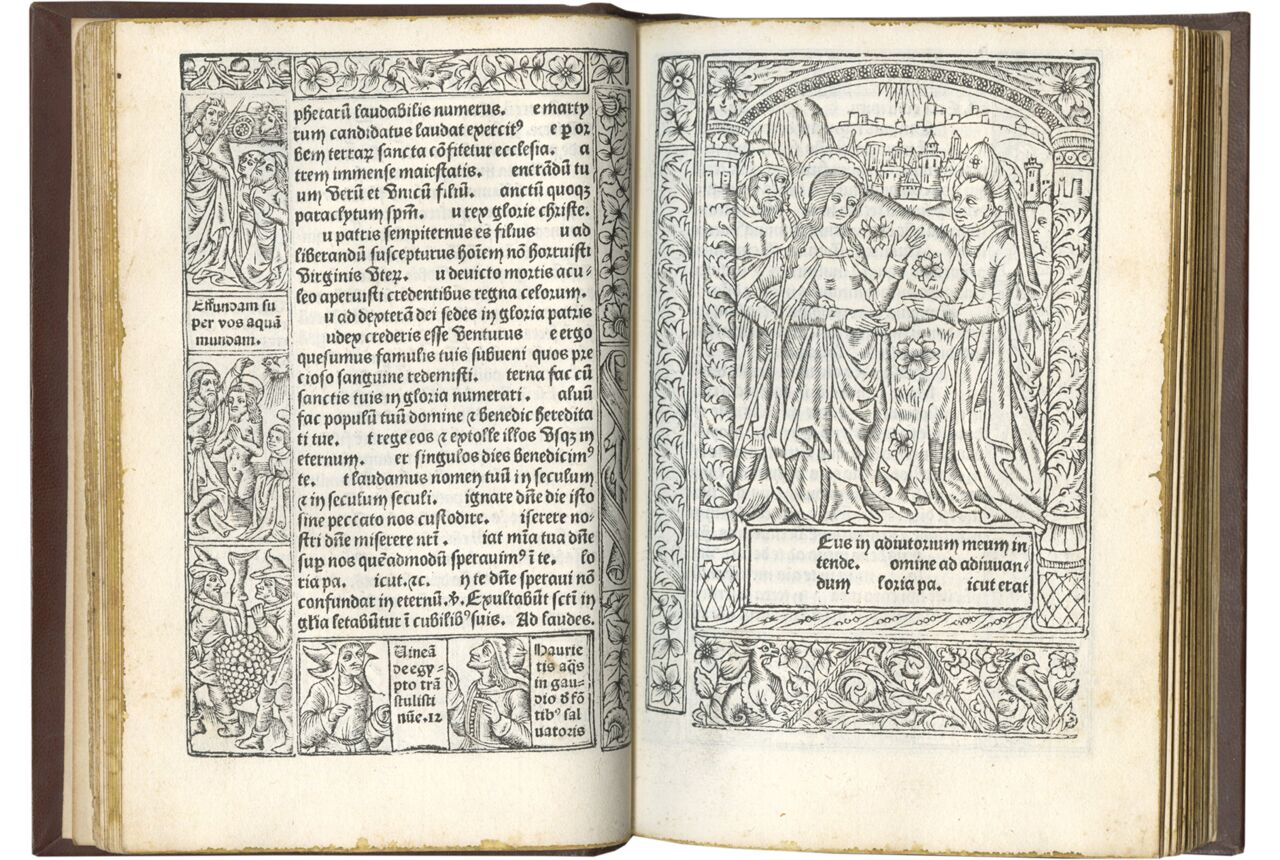 phetarū laudabilis numerus. e marty
rum candidatus laudat exercitꝰ e ꝑ or
bem terraꝝ sancta cōfitetur ecclesia. a
trem immense maiestatis. encrādū tu
um verū et vnicū filiū. anctū quoqꝫ
paraclytum spm̄. u rex glorie christe.
u patris sempiternus es filius u ad
liberandū suscepturus hoīem nō horruisti
virginis vterꝫ. u devicto mortis acu-
leo aperuisti credentibus regna celorum.
u ad dexterā dei sedes in gloria patris
udex crederis esse venturus e ergo
quesumus famulis tuis subueni quos pre
cioso sanguine redemisti. terna fac cū
sanctis tuis in gloria numerari. aluū
fac populū tuū domine ⁊ benedic heredita
ti tue. t rege eos ⁊ extolle illos vsqꝫ in
eternum. er singulos dies benedicimꝰ
te. t laudamus nomen tuū in seculum
⁊ in seculum seculi. ignare dn̄e die isto
sine peccato nos custodire. iserere no-
stri dn̄e miserere nr̄i. iat mīa tua dn̄e
suꝑ nos quēadmodū sperauimꝰ ī te. lo
ria pa. icut. ⁊c. n te dn̄e speraui nō
confundar in eternū. ℣. Exultabūt sctī in
gl'ia letabūtur ī cubilibꝰ suis. Ad laudes.
Effundam su
per vos aquā
mundam.
Uineā
de egy-
pto trā
stulisti
nūe. 12
Haurie
tis aq̄s
in gau-
dio d' fō
tibꝰ sal
uatoris
Eus in adiutorium meum in
tende. omine ad adiuuan-
dum loria pa. icut erat